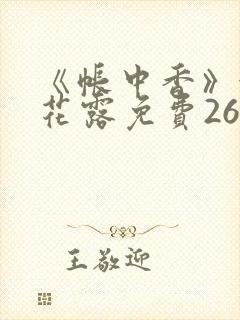 《帐中香》
花露免費26
王敬迎